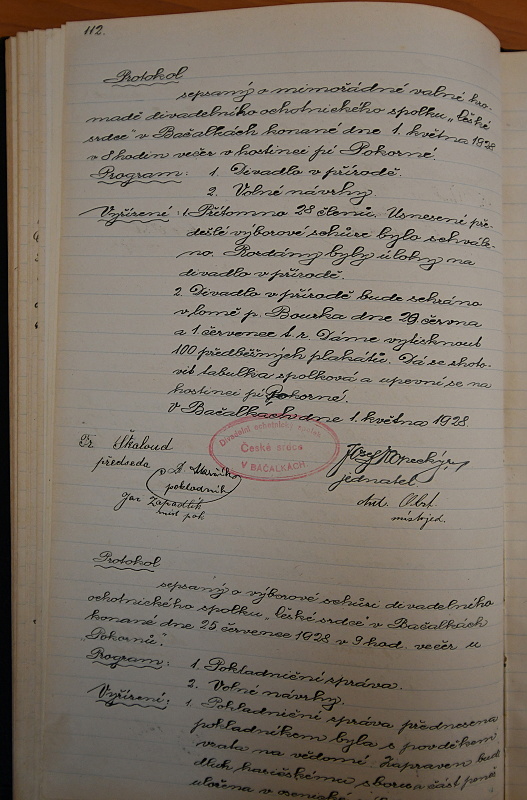 112.
Protokol
sepsaný o mimořádné valné hro-
madě divadelního ochotnického spolku „České
srdce" v Bačalkách konané dne 1. května 1928
v 8 hodin večer v hostinci pí Pokorné.
Program: 1. Divadlo v přírodě.
2. Volné návrhy
Vyřízení: 1. Přítomno 28 členů. Usnesení pře-
dešlé výborové schůze bylo schvále-
no. Rozdány byly úlohy na
divadlo v přírodě.
2. Divadlo v přírodě bude sehráno
v lomě p. Bourka dne 29. června
a 1 července t. r. Dáme vytisknout
100 předběžných plakátů. Dá se zhoto-
vit tabulka spolková a upevní se na
hostinci pí Pokorné.
V Bačalkách dne 1. května 1928.
Divadelně ochotnický spolek
České srdce
V BAČALKÁCH
Fr. Škaloud
předseda
pokladník
Jan Zapadlík
míst pok
Josef Kopecký
jednatel
Ant.
místojed.
Protokol
sepsaný o výborové schůzi divadelního
ochotnického spolku „České srdce" v Bačalkách
konané dne 25 července 1928 v 9 hod. večer u
„Pokornů".
Program: 1. Pokladniční správa.
2. Volné návrhy.
Vyřízení: 1. Pokladniční správa přednesena
pokladníkem byla s povděkem
vzata na vědomí. Zapraven bude
dluh hasičskému sboru a část peněz
uložena v